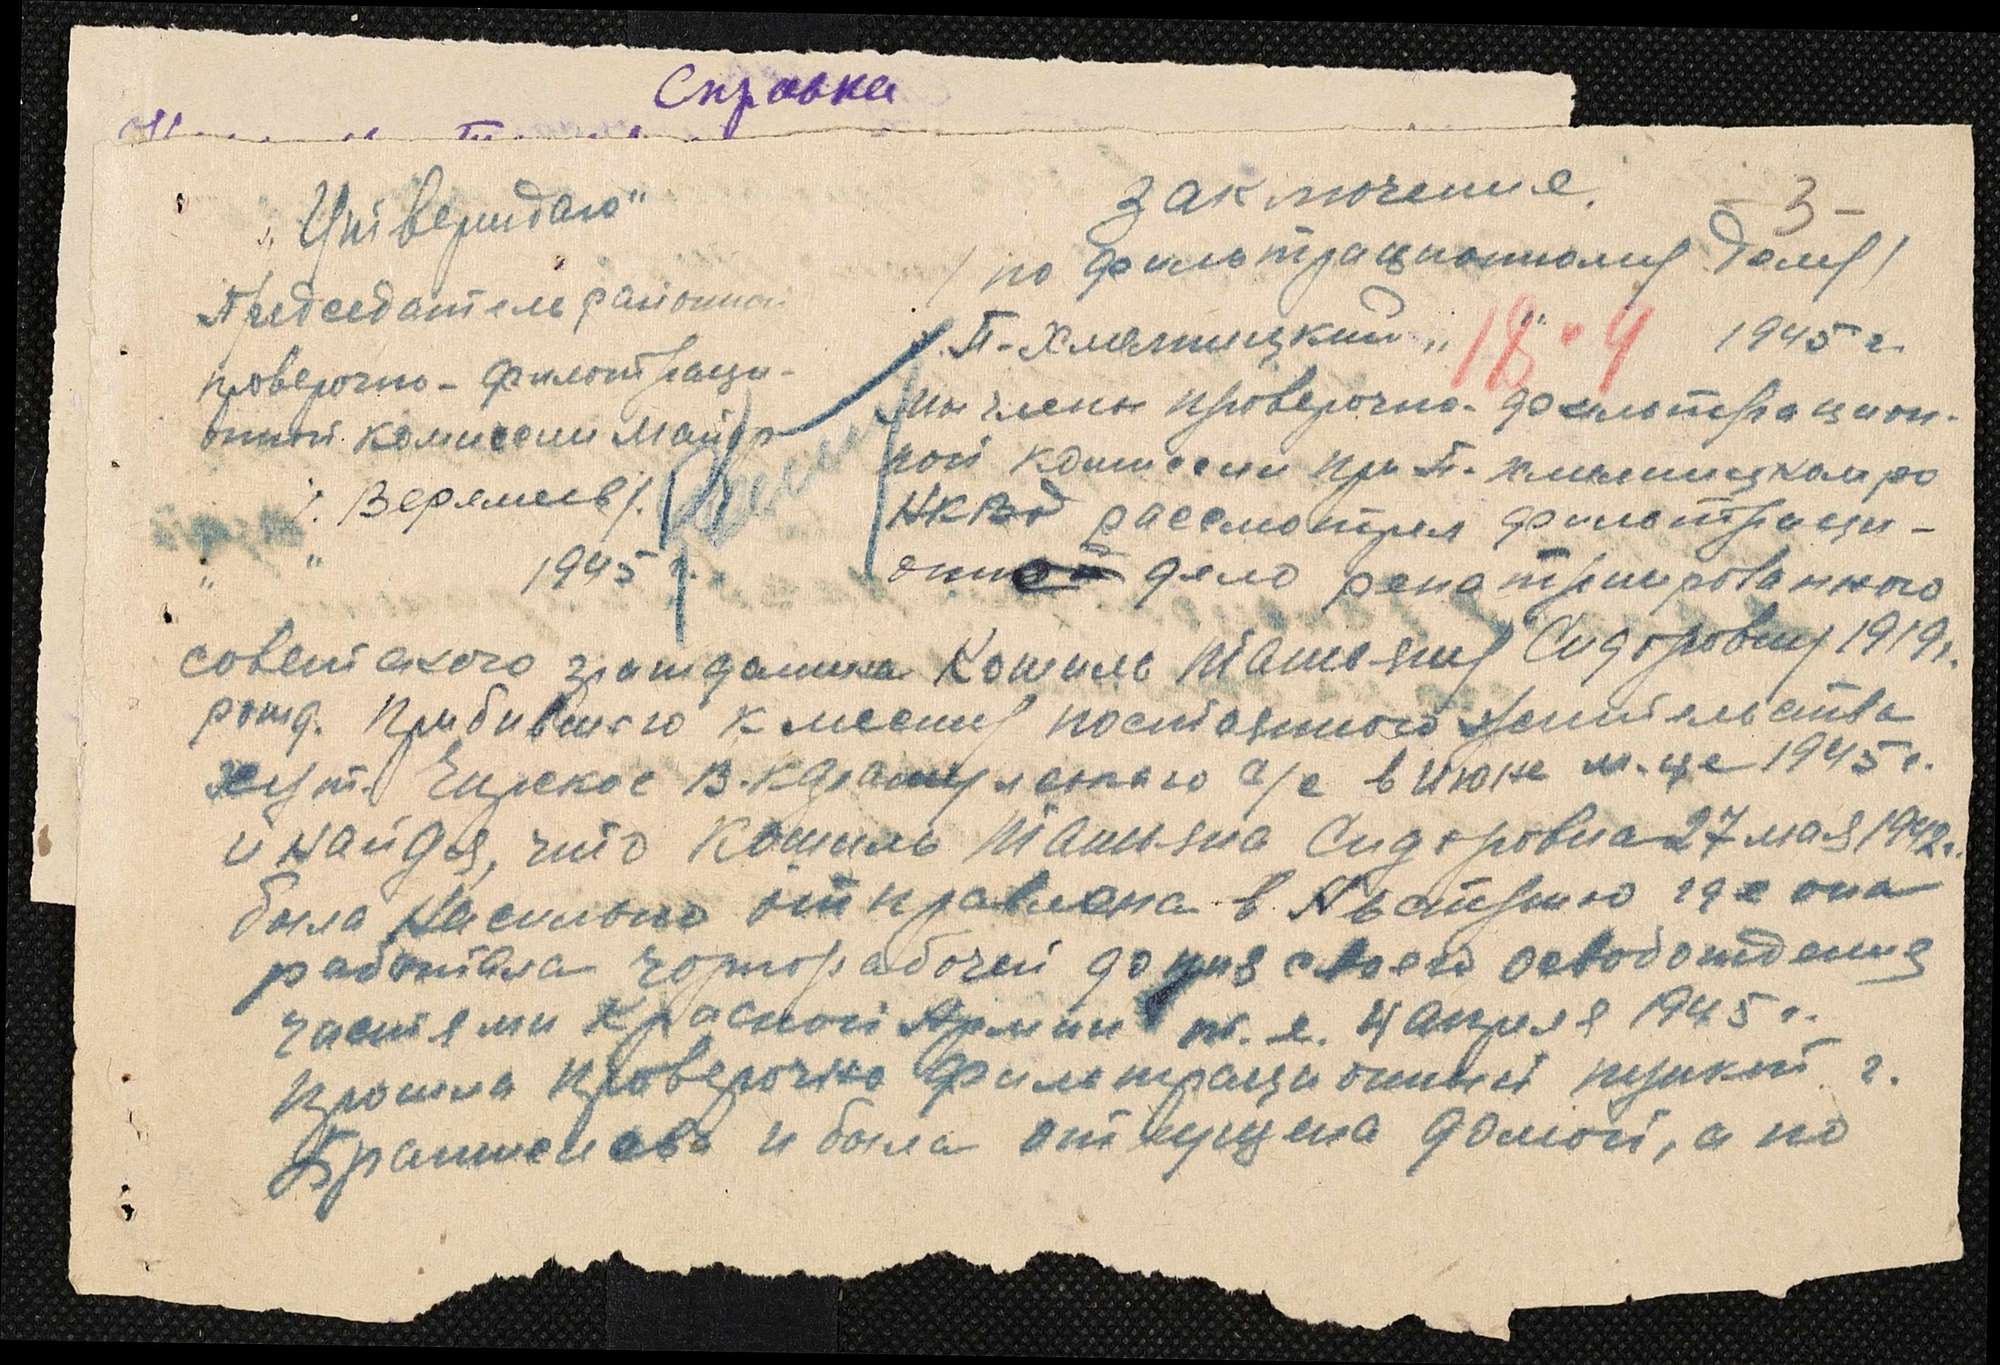 Справка
-3-
„Утверждаю"
Председатель районной
проверочно-филотраци-
онной комисеии майор
/. Веремеев/.
" " 1945 г.
Заключение.
/по фильтрационному делу/
П-Хмельницкий „18" 4 1945 г.
мы члены проверочно-филотрацион-
ной комиссии при П-Хмельницком ро
НКВД рассмотрел филотраци-
онное дело репатриированного
советского гражданина Кошиль Татьяну Сидоровну 1919г.
рожд. Прибившего к месту постаянного жительства
хут. В-К с/с в Июне м-це 1945г.
и найдя, что Кошиль Татьяна Сидоровна 27 мая 1942г.
была насильно отправлена в Австрию где она
работала чорнорабочей до дня своего освобождения
частями Красной Армии т.е. 4 апреля 1945 г.
прошла проверочно филотрационный пункт г.
Братиславо и была отпущена домой, а по